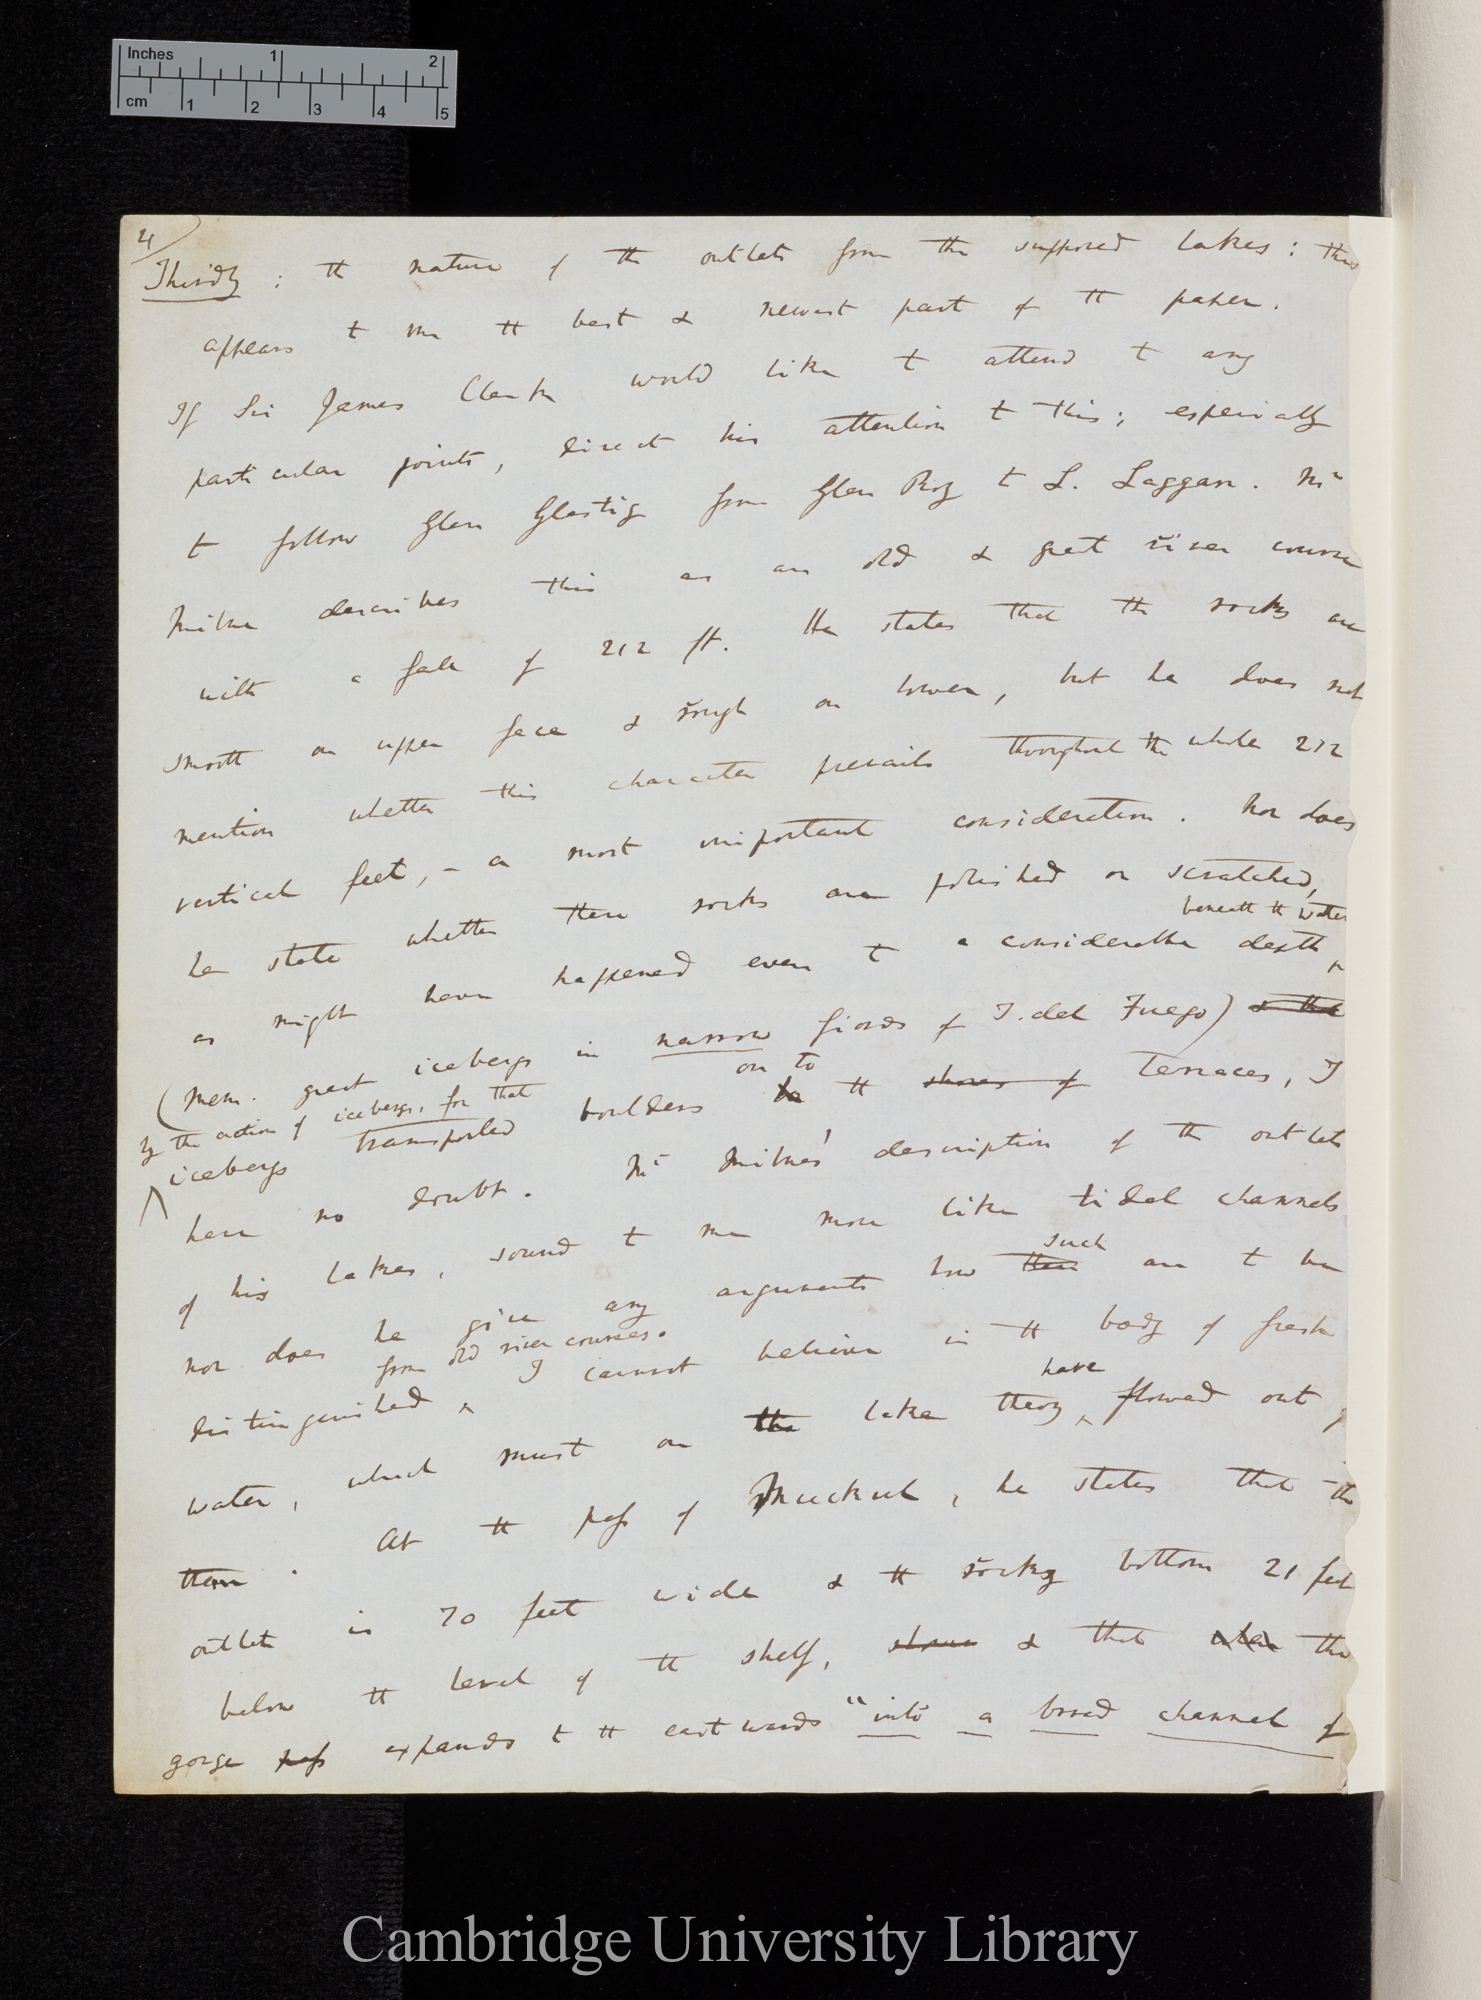 Inches 1 2
cm 1 2 3 4 5
4/
Thirdly: the nature of the outlets from the supposed lakes: this
appears to me the best & newest part of the paper.
If Sir James Clark would like to attend to any
particular points, direct his attention to this; especially
to follow Glen Glastig from Glen Roy to L. Laggan. Mr
Milne describes this as an old & great river course
with a fall of 212 ft. He states that the rocks are
smooth on upper face & rough on lower, but he does not
mention whether this character prevails throughout the whole 212
vertical feet, – a most important consideration. Nor does
he state whether these rocks are polished or scratched,
beneath the water
as might have happened even to a considerable depth
(Mem. great icebergs in narrow fiords of T. del Fuego) & that
by the action of icebergs, for that on to
icebergs transported boulders to the shores of Terraces, I
have no doubt. Mr Milnes' description of the outlets
of his lakes, sound to me more like tidal channels
such
nor does he give any arguments how these are to be
from old river courses.
distinguished I cannot believe in the body of fresh
have
water, which must on the lake theory flowed out of
them. At the pass of Muckul, he states that the
outlet is 70 feet wide & the rocky bottom 21 feet
below the level of the shelf, & that the
gorge pass expands to the eastwards "into a broad channel of
Cambridge University Library